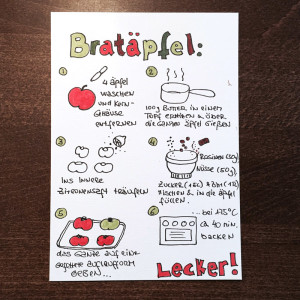 Bratäpfel:
1
4 Äpfel
waschen
und Kern-
ghäuse
entfernen
2
100g Butter in einem
Topf erhitzen & über
die ganzen Äpfel gießen
3
ins Innere
Zitronensaft träufeln
4
Rosinen (50g)
Nüsse (50g)
Zucker (1EL) & Zimt (1TL)
mischen & in die Äpfel
füllen.
5
das Ganze auf eine
gefettete Auflaufform
geben...
6
... bei 175°C
ca 40 min.
backen
Lecker!